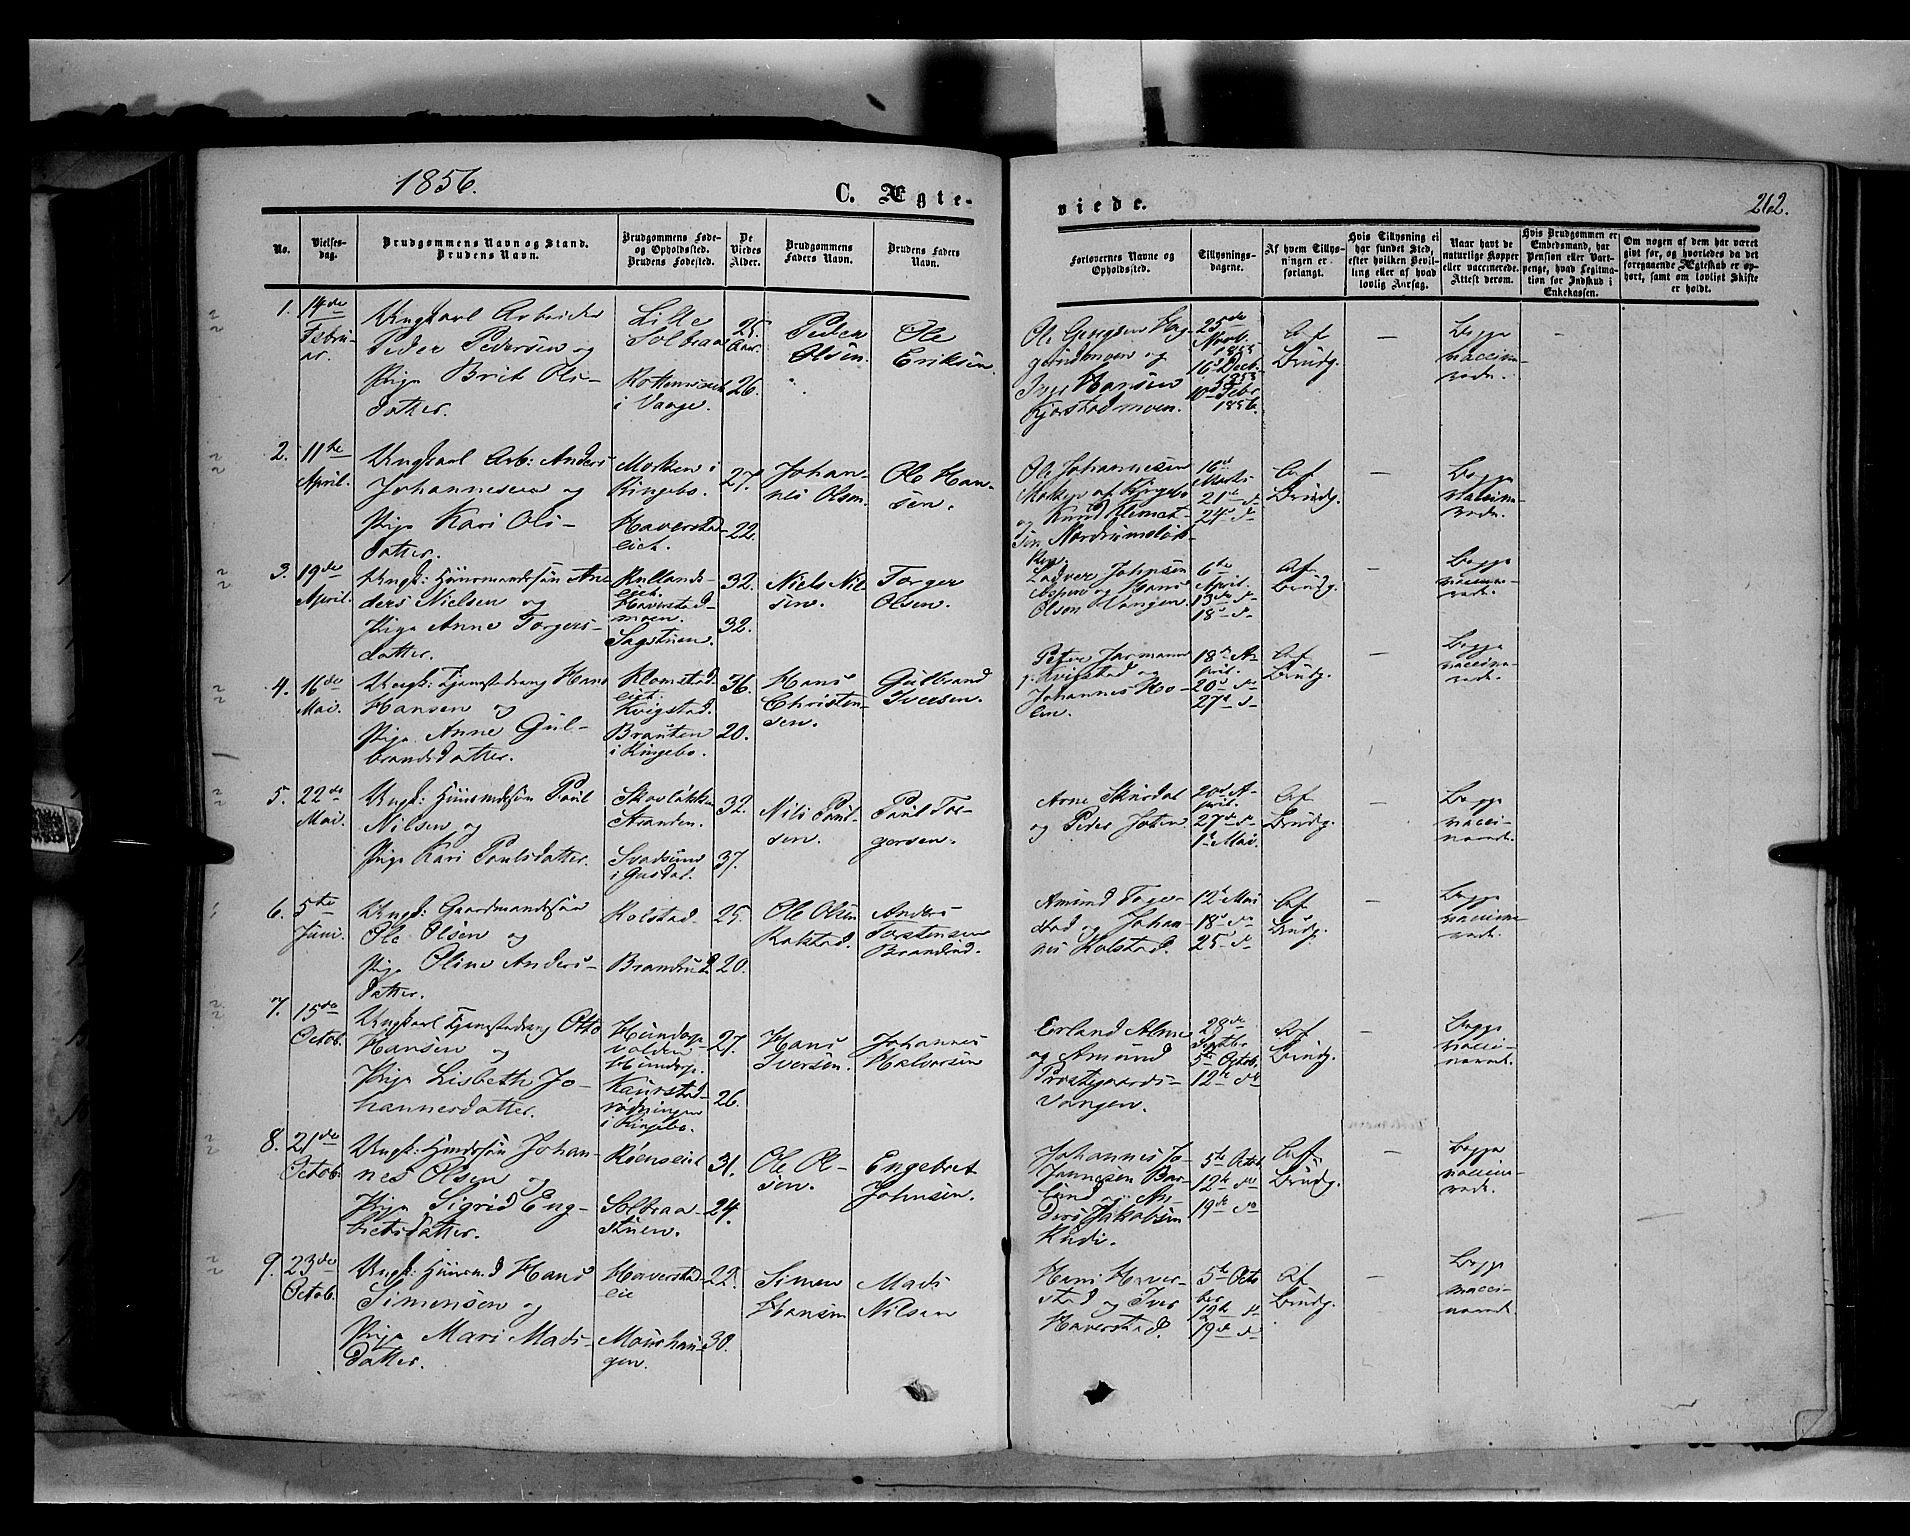 1856.
C. Ægte-
viede.
262.
No.
Vielses-
dag.
Brudgommens Navn og Stand.
Brudens Navn.
Brudgommens Føde-
og Opholdssted.
Brudens Fødested.
De
Viedes
Alder.
Brudgommens
Faders Navn.
Brudens Faders
Navn.
Forlovernes Navne og
Opholdssted.
Tillysnings-
dagene.
Af hvem Tillys-
ningen er
forlangt.
Hvis Tillysning ei
har fundet Sted,
efter hvilken Bevil-
ling eller af hvad
lovlig Aarsag.
Naar havt de
naturlige Kopper
eller vaccinerede.
Attest derom.
Hvis Brudgommen er
Embedsmand, har
Pension eller Vart-
penge, hvad Legitima-
tion for Indskud i
Enkekassen.
Om nogen af dem har været
gift før, og hvorledes da det
foregaaende Ægteskab er op-
hørt, samt om lovligt Skifte
er holdt.
1.
14de
Febru-
ar.
Ungkarl Arbeider
Peder Pedersen og
Pige Brit Ols-
datter.
Lille
Solbraae
i Vaage.
25
Aar.
26.
Peder
Olsen.
Ole
Eriksen.
Ole Georgsen
og
Iver Hansen
Kjorstadmoen.
25de
Novb.
1855
16d Decb.
10d Febr.
1856.
Af
Brudg.
—
Begge
vaccine-
rede.
2.
11te
April.
Ungkarl Arb: Anders
Johannesen og
Pige Kari Ols-
datter.
Morken i
Ringebo.
Haverstad-
eiet.
27.
22.
Johan-
nes Olsen.
Ole Han-
sen.
Ole Johannesen
af Ringebo
og Knud Klemet-
sen
16d
Marts
21d d
24d d
Af
Brudg.
—
Begge
vaccine-
rede.
3.
19de
April.
Ungk: Huusmandssøn An-
ders Nielsen og
Pige Anne Torgers-
datter.
Rullands-
eiet.
Haverstad-
moen.
Sagstuen.
32.
32.
Niels Niel-
sen.
Torger
Olsen.
Johnsen
Aspen og Hans
Olsen Vangen.
6te
April.
13de d
18d d
Af
Brudg.
—
Begge
vaccine-
rede.
4.
16de
Mai.
Ungk: Tjenestedreng Hans
Hansen og
Pige Anne Gul-
brandsdatter.
Klomstad-
eiet.
Kvigstad.
Brauten
i Ringebo.
36.
20.
Hans
Christen-
sen.
Gulbrand
Iversen.
Peter Jarmann
Kvigstad og
Johannes Kro-
len.
18de A-
pril.
20d d
27d d
Af
Brudg.
—
Begge
vaccine-
rede.
5.
22de
Mai.
Ungk: Huusmdssøn Poul
Nilsen og
Pige Kari Poulsdatter.
Skovløkken
Stranden.
Svadsum
i Gusdal.
32.
37.
Nils Poul-
sen.
Poul Tor-
gersen.
Arne Skurdal
og Peder Joten
20d A-
pril.
27d d
1d Mai.
Af
Brudg.
—
Begge
vacci-
nerede.
6.
5te
Juni.
Ungk: Gaardmandssøn
Ole Olsen og
Pige Oline Anders-
datter.
Kolstad.
Brandrud.
25.
20.
Ole Olsen
Kolstad.
Anders
Torstensen
Brandrud.
Amund Toger-
stad og Johan-
nes Kolstad.
12d Mai
18d d
25d d
Af
Brudg.
Begge
vaccine-
rede.
7.
15de
Octob.
Ungkarl Tjenestedreng Otto
Hansen og
Pige Lisbeth Jo-
hannesdatter.
Hundorp
volden
Hundorp.
Kaurstad-
rødningen
i Ringebo.
27.
26.
Hans
Iversen.
Johannes
Halvorsen
Erland Alme
og Amund
Præstegaards-
vangen.
28de
Septbr
5te Octob.
12te d
Af
Brudg.
—
Begge
vacci-
nerede.
8.
21de
Octob.
Ungk: Hmdssøn Johan-
nes Olsen og
Pige Sigrid Eng-
bretsdatter.
Röenseiet
Solbraa-
stuen.
31.
24.
Ole Ol-
sen.
Engebret
Johnsen.
Johannes Jo-
hannesen Bor-
lund og An-
ders Jakobsen
Rudi.
5te Octob
12te do
19de do
Af
Brudg.
—
Begge
vaccine-
rede.
9.
23de
Octob.
Ungk: Huusmd Hans
Simensen og
Pige Mari Mads-
datter.
Haverstad-
eie
Moushau-
gen.
22.
30.
Simen
Hansen
Mads
Nilsen
Hans Haver-
stad og Iver
Haverstad.
5te Octo
ber
12te d
19de d
Af
Brudg.
—
Begge
vacci-
nerede.